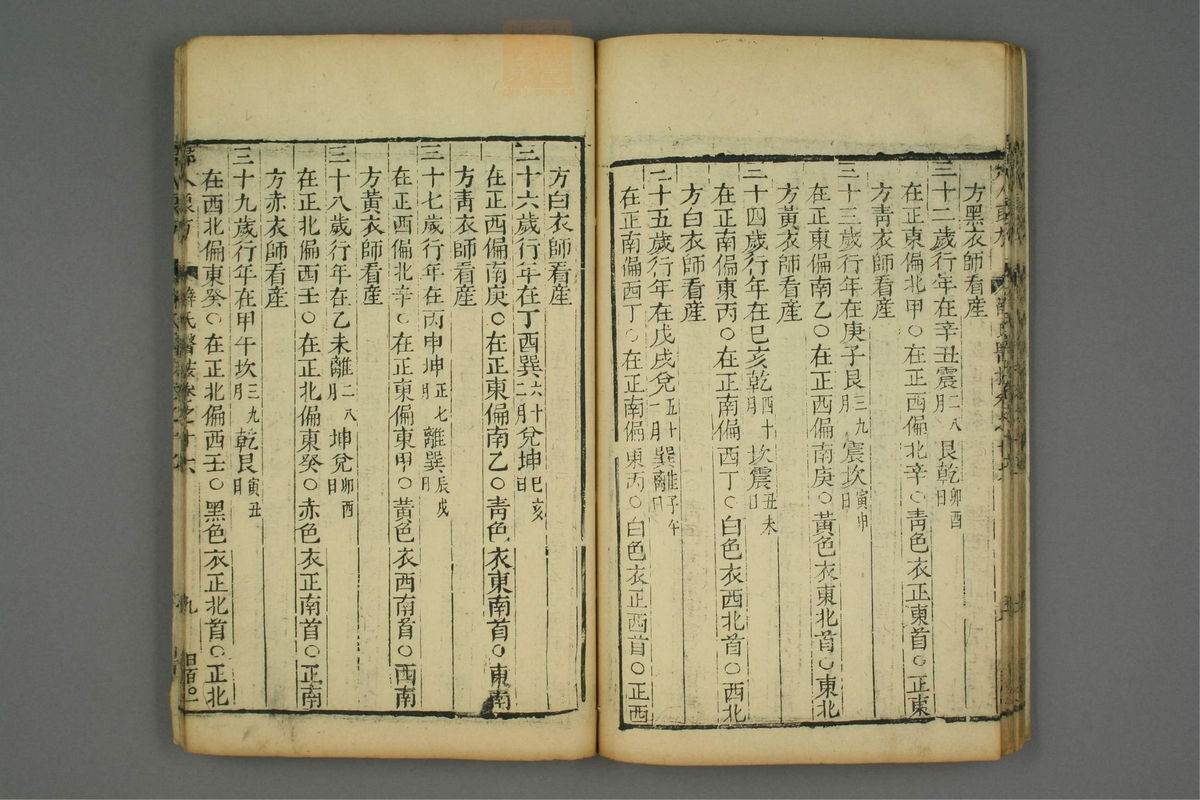 方黑衣師看産
三十二歲行年在辛丑震二八月艮乾卯酉日
在正東偏北甲○在正西偏北辛○靑色衣正東首○正東
方靑衣師看産
三十三歲行年在庚子艮三九月震坎寅申日
在正東偏南乙○在正西偏南庚○黃色衣東北首○東北
方黃衣師看産
三十四歲行年在巳亥乾四十月坎震丑未日
在正南偏東丙○在正南偏西丁○白色衣西北首○西北
方白衣師看産
三十五歲行年在戊戌兌五十一月巽離子午日
在正南偏西丁○在正南偏東丙○白色衣正西首○正西
方白衣師看産
三十六歲行年在丁酉巽六十二月兌坤巳亥日
在正西偏南庚○在正東偏南乙○靑色衣東南首○東南
方靑衣師看産
三十七歲行年在丙申坤正七月離巽辰戌日
在正西偏北辛○在正東偏東甲○黃色衣西南首○西南
方黃衣師看産
三十八歲行年在乙未離二八月坤兌卯酉日
在正北偏西壬○在正北偏東癸○赤色衣正南首○正南
方赤衣師看産
三十九歲行年在甲午坎三九月乾艮寅丑日
在西北偏東癸○在正北偏西壬○黑色衣正北首○正北
薛氏醫按卷之十六
九